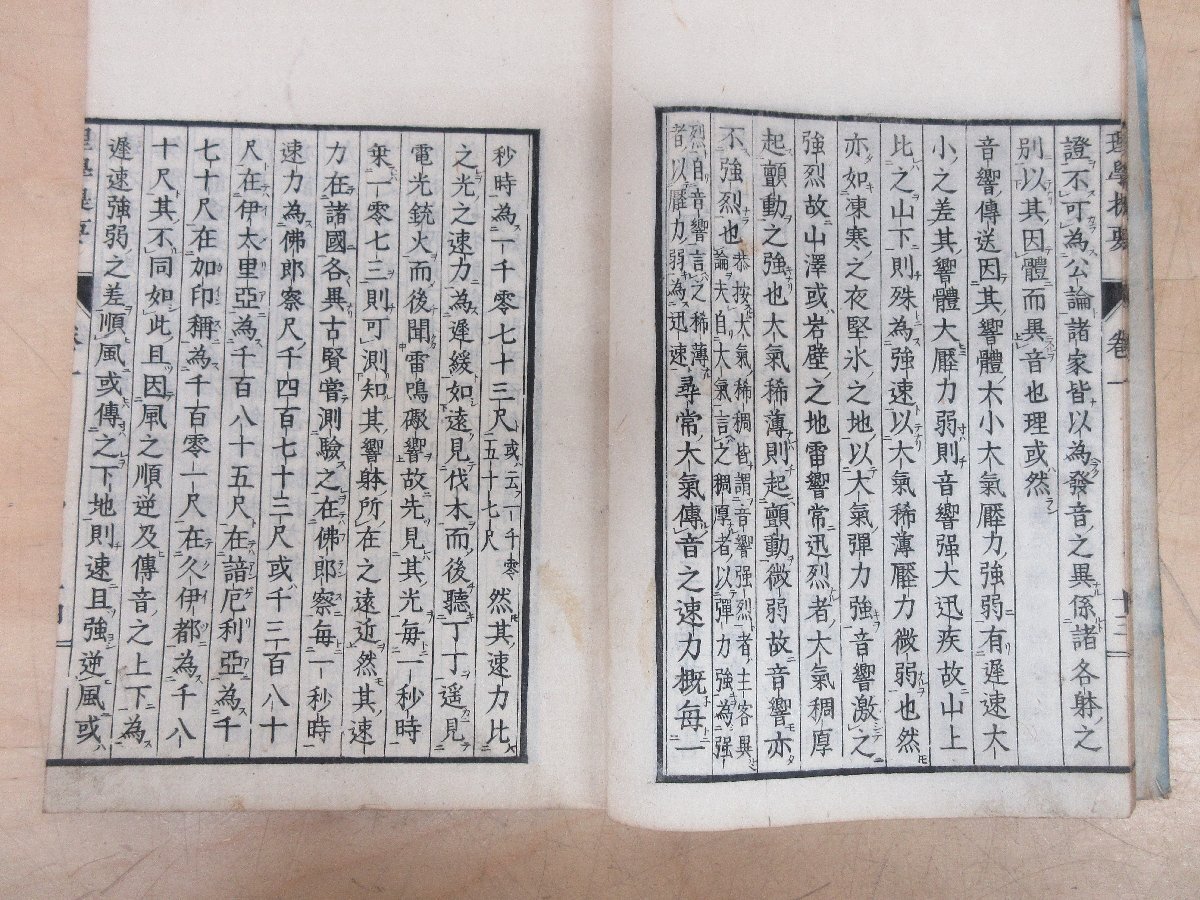 理學提要 卷一 十三
證不可為公論諸家皆以為發音之異係諸各躰之
別以其因體而異音也理或然
音響傳送因其響體大小大氣壓力強弱有遲速大
小之差其響體大壓力弱則音響强大迅疾故山上
比之山下則殊為強速以大氣稀薄壓力微弱也然
亦如凍寒之夜堅氷之地以大氣彈力強音響激之
強烈故山澤或岩壁之地雷響常迅烈者大氣稠厚
起顫動之強也大氣稀薄則起顫動微弱故音響亦
不強烈也恭按大氣稀稠皆謂音響强烈者主客異論夫自大氣言之稠厚者以彈力強為强
烈自音響言之稀薄者以壓力弱為迅速尋常大氣傳音之速力概每一
秒時為一千零七十三尺或云一千零五十七尺然其速力比
之光之速力為遲緩如遠見伐木而後聽丁丁遥見
電光銃火而後聞雷鳴礮響故先見其光每一秒時
乗一零七三則可測知其響躰所在之遠近然其速
力在諸國各異古賢嘗測驗之在佛郎察每一秒時
速力為佛郎察尺千四百七十三尺或千三百八十
尺在伊太里亞為千百八十五尺在諳厄利亞為千
七十尺在加印稱為千百零一尺在久伊都為千八
十尺其不同如此且因風之順逆及傳音之上下為
遲速強弱之差順風或傳之下地則速且強逆風或